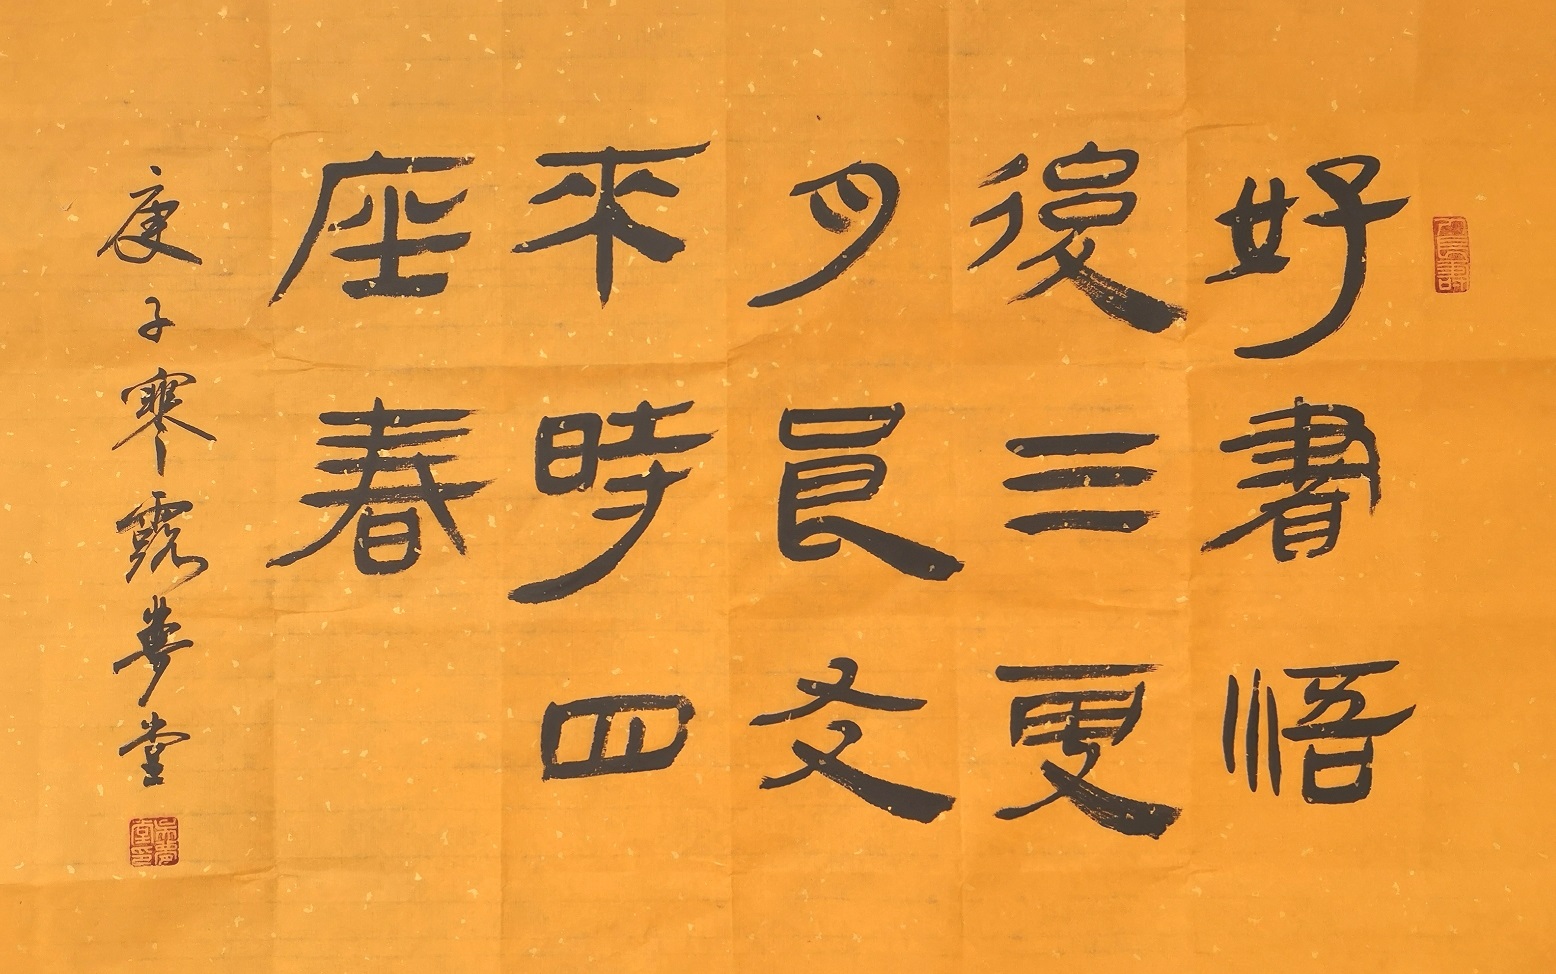 好書悟
後三更
月良友
來時四
座春
庚子寒露夢堂
吴夢堂印